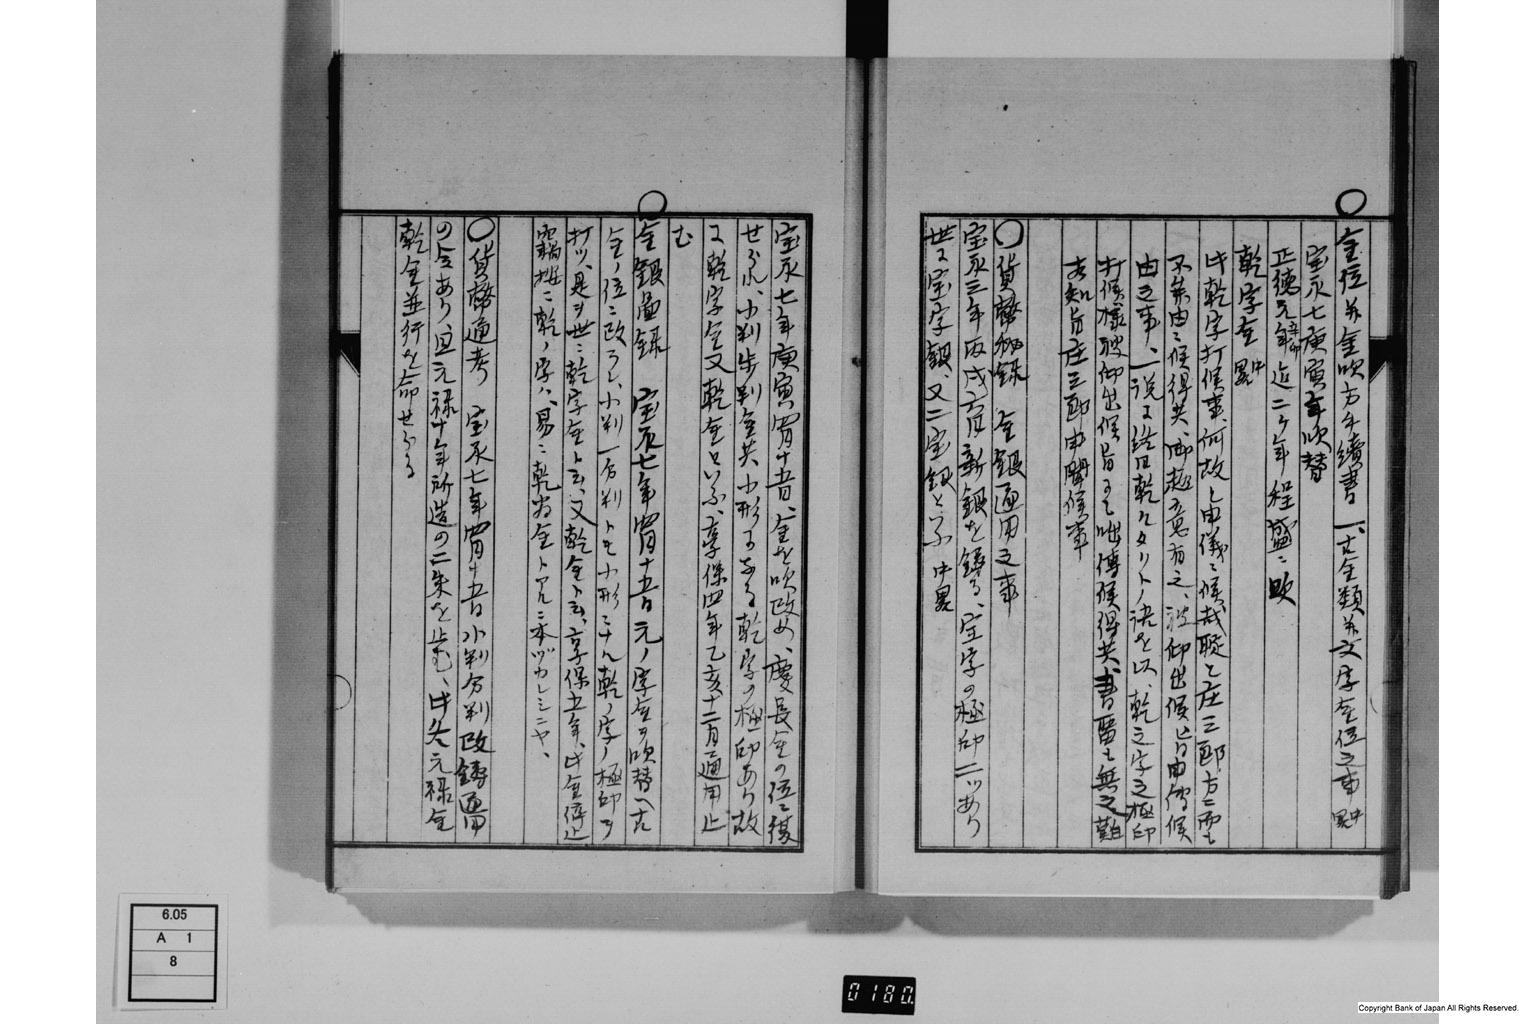 ○
金位并金吹方手續書 一、古金類并文字金位之事 中畧
宝永七庚寅年吹替
正徳元年辛卯迄二ヶ年程盛ニ吹
乾字金 中畧
此乾字打候事、何故と申儀ニ候哉聢と庄三郎方ニ而も
不案内ニ候得共、御趣意有之、被仰出候哉ニ申傳候
由之事、一説ニ終日乾々タリトノ語を以、乾之字之極印
打候様被仰出候旨も申傳候得共書留も無之難
相知旨庄三郎申聞候事
○貨幣秘録 金銀通用之事
宝永三年丙戌六月新銀を鋳る、宝字の極印二ツあり
世に宝字銀、又二宝銀と云 中畧
宝永七年庚寅四月十五日、金を吹改め、慶長金の位に復
せられ、小判歩判金共、小形になる乾字の極印あり故
に乾字金又乾金といふ、享保四年乙亥十二月通用止
む
○
金銀圖録 宝永七年四月十五日元ノ字金ヲ吹替ヘ古
金ノ位ニ改ラレ、小判一分判トモ小形ニナル乾ノ字ノ極印ヲ
打ツ、是ヲ世ニ乾字金ト云、又乾金ト云、享保五年、此金停止
竊按ニ乾ノ字ハ、易ニ乾為金トアルニ本ヅカレシニヤ、
○貨幣通考 宝永七年四月十五日小判分判改鋳通用
の令あり且元禄十年所造の二朱を止む、此冬元禄金
乾金並行を命せらる
6.05
A 1
8
0180.
Copyright Bank of Japan All Rights Reserved.